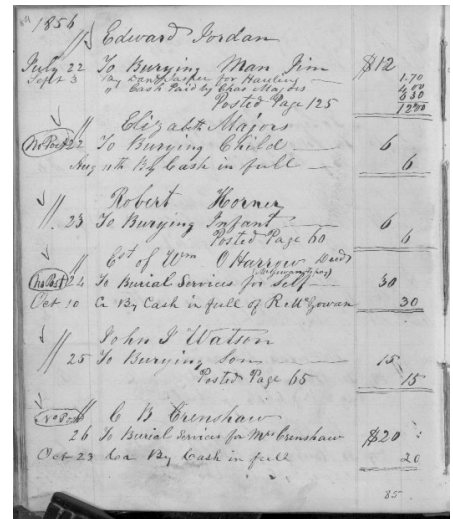 1856
Edward Jordan
July 22 To Burying Man Jim $12
Sept 3 By for Hauling 1.70
" Cash Paid by Chas Majors
Posted Page 125 1200
Elizabeth Majors
No Post 22 To Burying Child 6
Aug 11th By Cash in full 6
Robert Horner
" 23 To Burying Infant 6
Posted Page 60 6
Est of Wm O Harrow Decd
No Post 24 To Burial Services for Self 30
Oct 10 Cr By Cash in full of R McGowan 30
John J Watson
" 25 To Burying Son 15
Posted Page 65 15
No Post C B Crenshaw
26 To Burial Services for Mrs Crenshaw $20
Oct 23 Cr By Cash in full 20
85